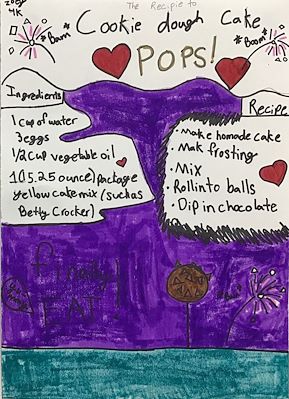 The Recipie to
Cookie dough Cake
POPS!
*Bam*
*Boom*
Ingredients
1 cup of water
3 eggs
1/2 cup vegetable oil
1 (15.25 ounce) package
yellow cake mix (such as
Betty Crocker)
Recipe
• Make homade cake
• Mak frosting
• Mix
• Roll into balls
• Dip in chocolate
finally
EAT!